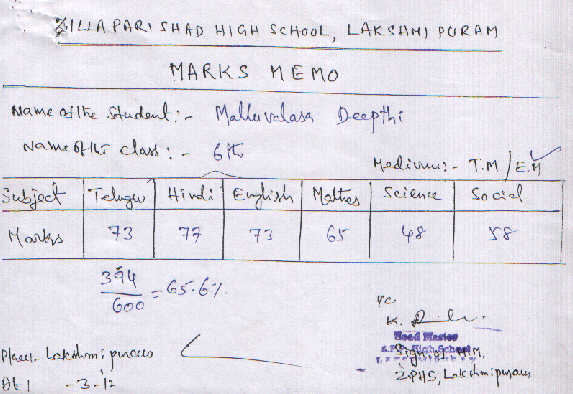 ZILLAPARISHAD HIGH SCHOOL, LAKSHMI PURAM
MARKS MEMO
Name of the Student :- Malluvalasa Deepthi
Name of the Class :- 6th
Medium :- T.M / E.M
Subject Telugu Hindi English Maths Science Social
Marks 73 77 73 65 48 58
394/600 = 65.6%
K.
Head Master
Place. Lakshmipuram
Z.P.H.S, Lakshmipuram
Dt -3-12